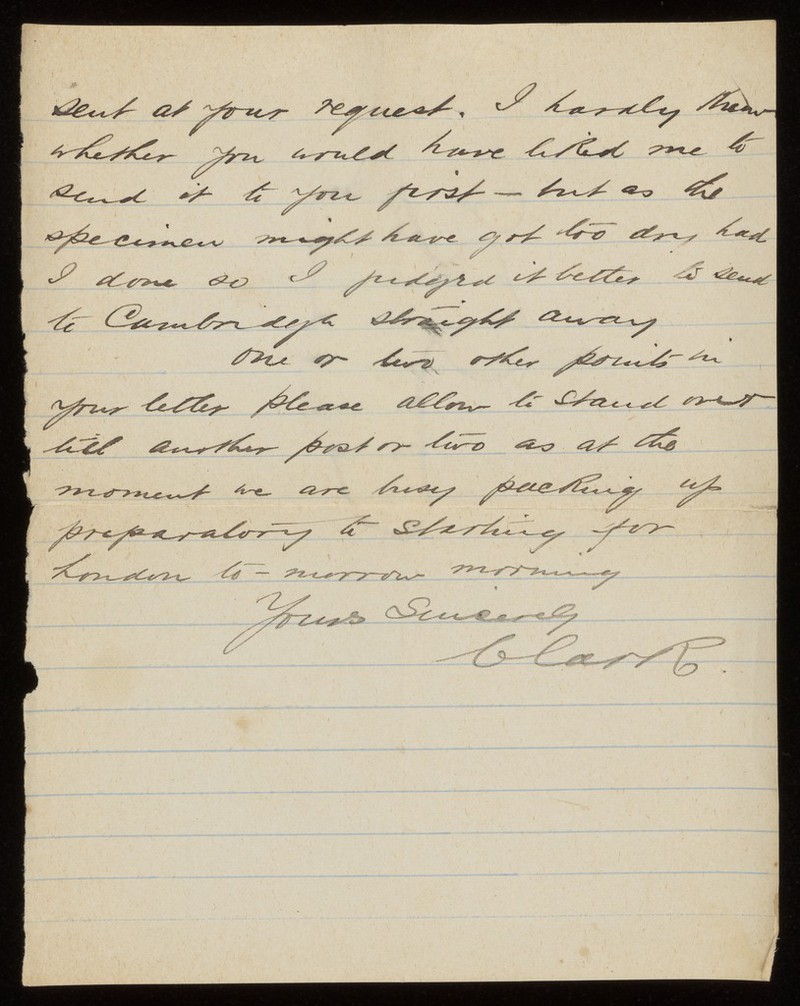 sent at your request. I hardly knew
whether you would have liked me to
send it to you first – but as the
specimen might have got too dry had
I done so I judg'd it better to send
to Cambridge straight away
One or two other points in
your letter please allow to stand over
till another post or two as at the
moment we are busy packing up
preparatory to starting for
London to-morrow morning
Yours Sincerely
Clark